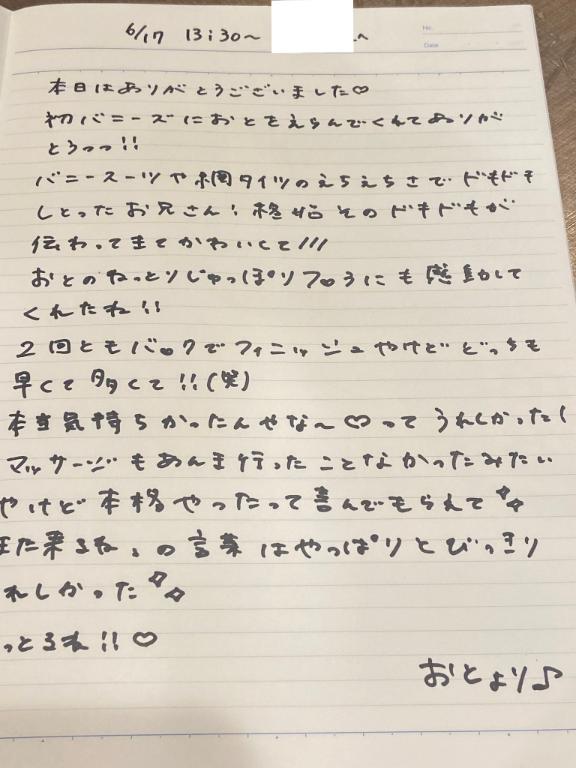 6/17 13:30〜 へ
No.
Date
本日はありがとうございました♡
初バニーズにおとをえらんでくれてありが
とうっっ!!
バニースーツや網タイツのえちえちさでドキドキ
しとったお兄さん! そのドキドキが
伝わってきてかわいくて///
おとのねっとりじゅっぽりフ♡ラにも感動して
くれたね!!
2回ともバ♡クでフィニッシュやけどどっちも
早くて多くて!!(笑)
本当気持ちかったんやな〜♡ってうれしかった(
マッサージもあんま行ったことなかったみたい
やけど本格やったって喜んでもらえて✧✧
また来るね」の言葉はやっぱりとびっきり
れしかった✧✧
っとるね!!♡
おとより♪